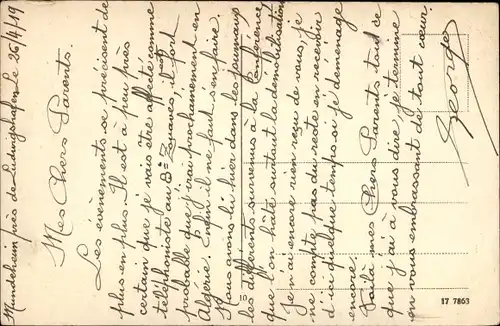 Mundenheim près de Ludwigshafen le 26/4/19
Mes Chers Parents.
Les évènements se précisent de
plus en plus. Il est à peu près
certain que je vais être affecté comme
téléphoniste au 8e Zouaves, il est fort
probable que j'irai prochainement en
Algérie. Enfin il ne faut s'en faire.
Nous avons lu hier dans les journaux
les différents survenus à la Conférence
que l'on hâte surtout la démobilisation
Je n'ai encore rien reçu de vous, je
ne compte pas du reste en recevoir
d'ici quelque temps si je déménage
encore.
Voilà mes Chers Parents tout ce
que j'ai à vous dire, je termine
en vous embrassant de tout cœur.
George
17 7863